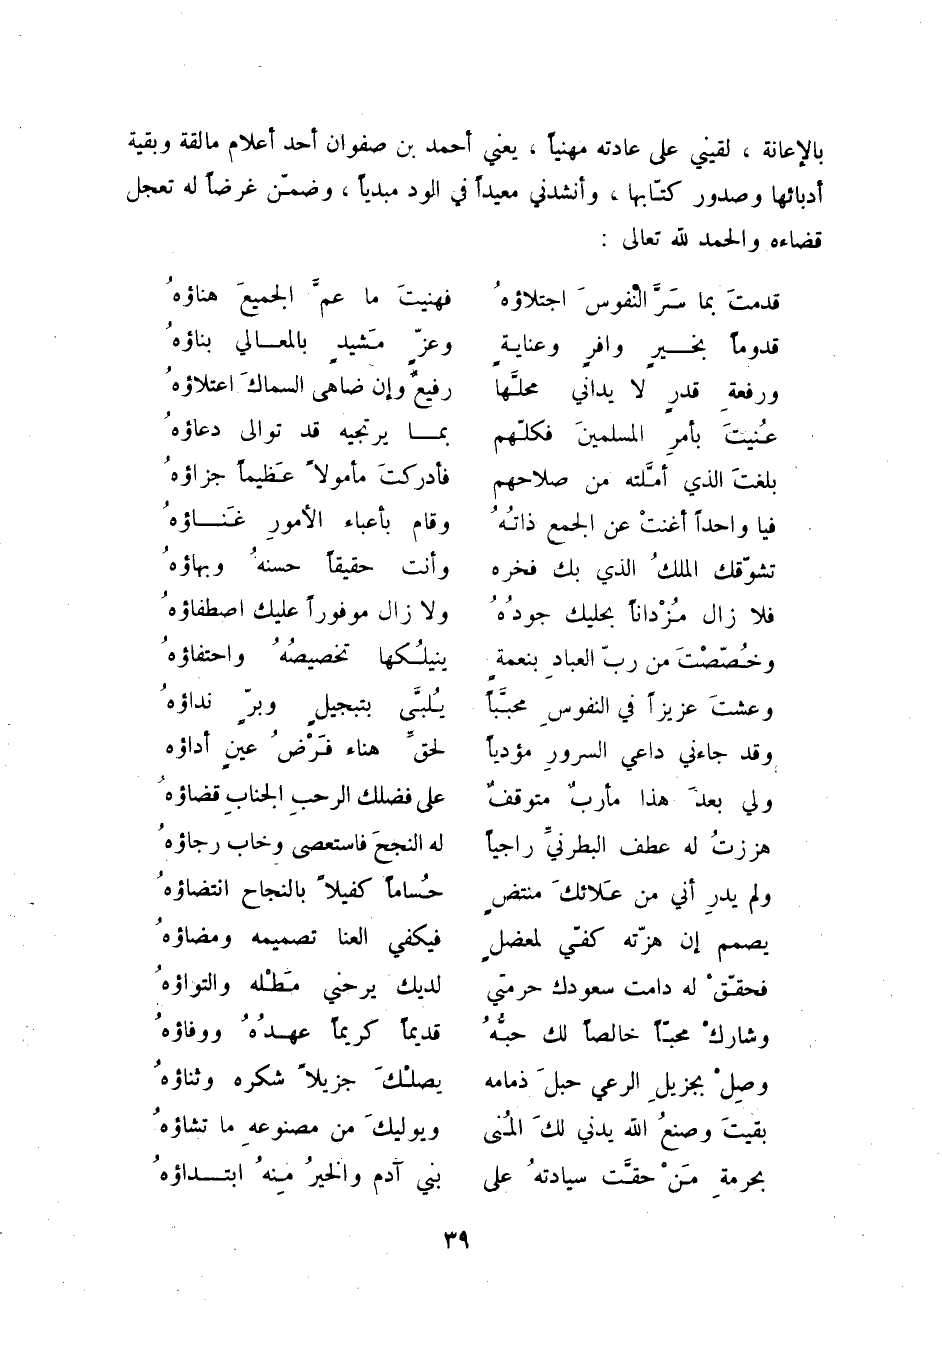 بالإعانة ، لقيني على عادته مهنياً ، يعني أحمد بن صفوان أحد أعلام مالقة وبقية
أدبائها وصدور كتّابها ، وأنشدني معيداً في الود مبدياً ، وضمّن غرضاً له تعجل
قضاءه والحمد لله تعالى :
قدمتَ بما سَرَّ النْفوسَ اجتلاؤهُ فهنيتَ ما عمَّ الجميعَ هناؤهُ
قدوماً بخـــيرٍ وافرٍ وعنايةٍ وعزّ مَشيدٍ بالمعـالي بناؤهُ
ورفعةِ قدرٍ لا يداني محلَّها رفيعٌ وإن ضاهى السماكَ اعتلاؤهُ
عُنيتَ بأمرِ المسلمينَ فكلّهم بمـا يرتجيه قد توالى دعاؤهُ
بلغتَ الذي أمَّلته من صلاحهم فأدركتَ مأمولاً عَظيماً جزاؤهُ
فيا واحداً أغنتْ عن الجمع ذاتُهُ وقام بأعباء الأمورِ غَنــاؤهُ
تشوّقك الملكُ الذي بك فخره وأنت حقيقاً حسنهُ وبهاؤهُ
فلا زال مُزْداناً بحليك جودُهُ ولا زال موفوراً عليك اصطفاؤهُ
وخُصّصْتَ من ربّ العبادِ بنعمةٍ ينيلُكها تخصيصُهُ واحتفاؤهُ
وعشتَ عزيزاً في النفوسِ محبَّباً يُلبَّى بتبجيلٍ وبرّ نداؤهُ
وقد جاءني داعي السرورِ مؤدياً لحقِّ هناء فَرْضُ عينٍ أداؤه
ولي بعدَ هذا مأربٌ متوقفٌ على فضلك الرحبِ الجنابِ قضاؤهُ
هززتُ له عطف البطرنيِّ راجياً له النجحَ فاستعصى وخاب رجاؤهُ
ولم يدرِ أني من عَلائكَ منتضٍ حُساماً كفيلاً بالنجاح انتضاؤهُ
يصمم إن هزّته كفّي لمعضلٍ فيكفي العنا تصميمه ومضاؤهُ
فحقّقْ له دامت سعودك حرمتي لديك يرحني مَطْله والتواؤهُ
وشاركْ محبّاً خالصاً لك حبُّهُ قديماً كريماً عهدُهُ ووفاؤهُ
وصِلْ بجزيلِ الرعي حبلَ ذمامه يصلْكَ جزيلاً شكره وثناؤهُ
بقيتَ وصنعُ الله يدني لكَ المُنى ويوليكَ من مصنوعهِ ما تشاؤهُ
بحرمةِ مَنْ حقّت سيادتهُ على بني آدم والخيرُ مِنهُ ابتــداؤهُ
٣٩